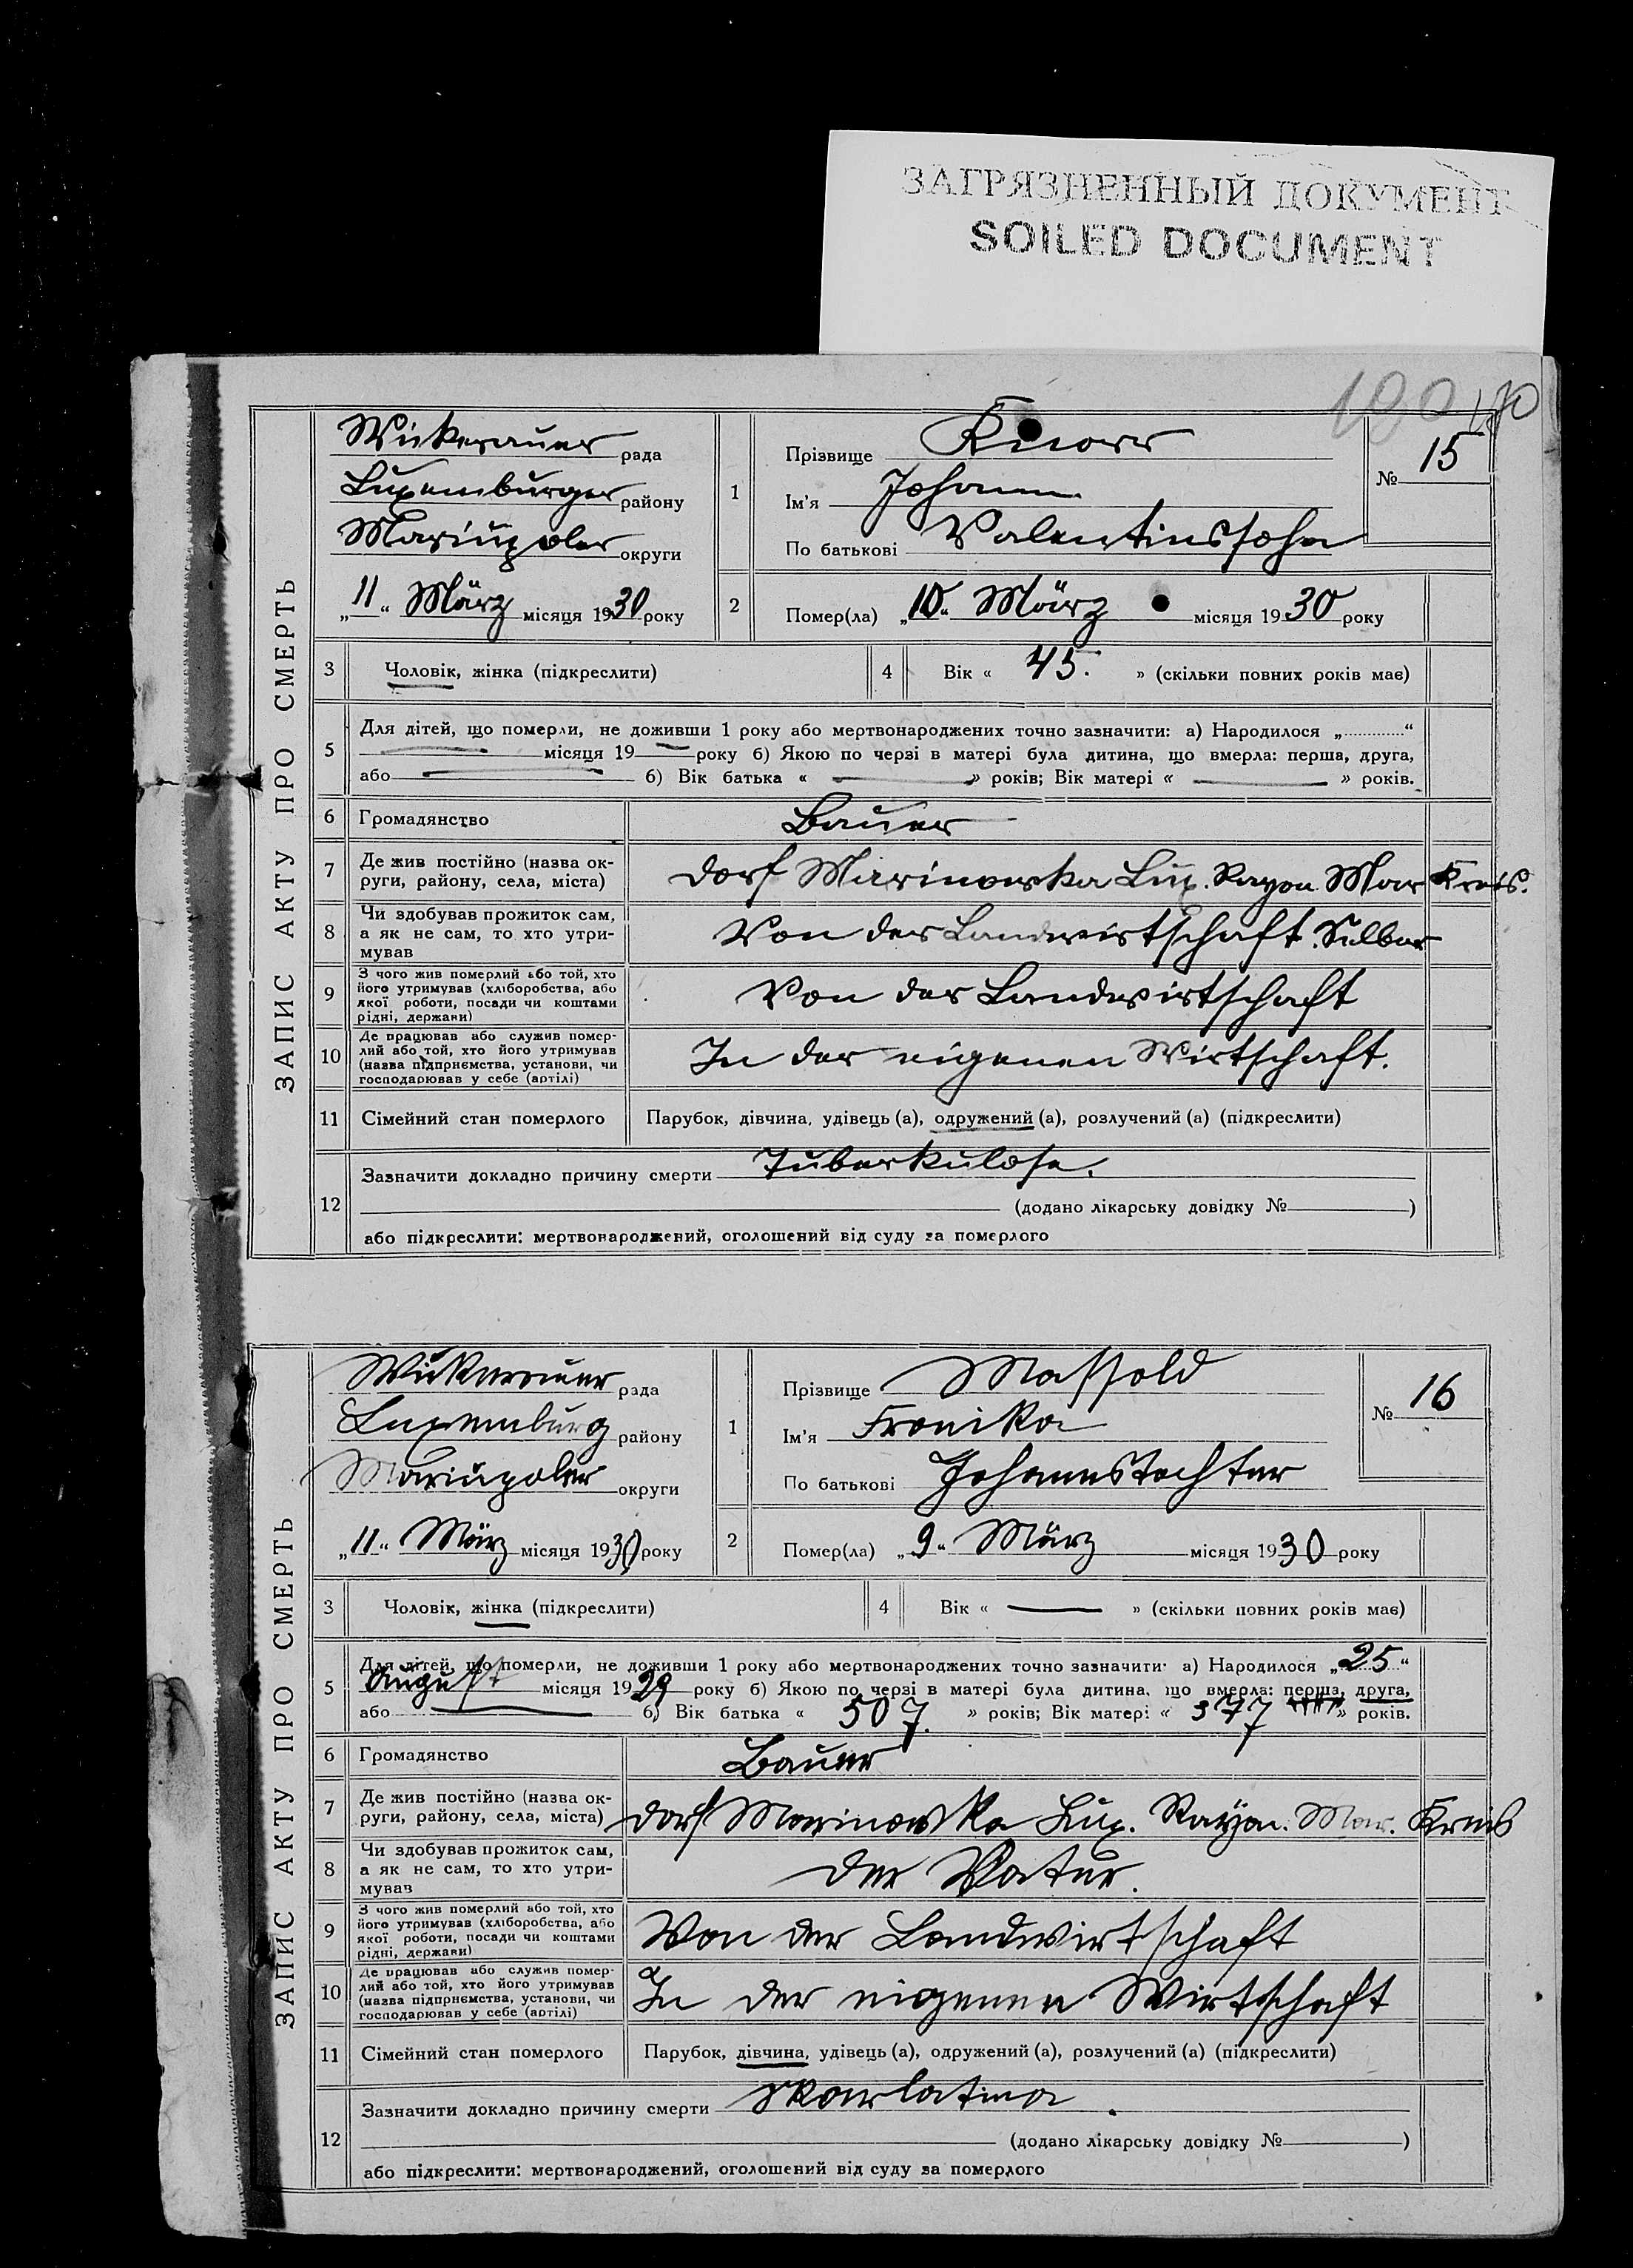 ЗАГРЯЗНЕННЫЙ ДОКУМЕНТ
SOILED DOCUMENT
190
ЗАПИС АКТУ ПРО СМЕРТЬ
Wickerauer рада
Luxemburger району
Mariupoler округи
„11“ März місяця 1930 року
1 Прізвище Knorr
Ім'я Johann
По батькові Valentinssohn
№ 15
2 Помер(ла) „10“ März місяця 1930 року
3 Чоловік, жінка (підкреслити)
4 Вік « 45. » (скільки повних років має)
5 Для дітей, що померли, не доживши 1 року або мертвонароджених точно зазначити: а) Народилося „............“
— місяця 19 — року б) Якою по черзі в матері була дитина, що вмерла: перша, друга,
або — б) Вік батька « — » років; Вік матері « — » років.
6 Громадянство Bauer
7 Де жив постійно (назва ок-
руги, району, села, міста) Dorf Marinowka Lux. Rayon Mar Kreis.
8 Чи здобував прожиток сам,
а як не сам, то хто утри-
мував Von der Landwirtschaft. Selber
9 З чого жив померлий або той, хто
його утримував (хліборобства, або
якої роботи, посади чи коштами
рідні, держави) Von der Landwirtschaft
10 Де працював або служив помер-
лий або той, хто його утримував
(назва підприємства, установи, чи
господарював у себе (артілі) In der eigenen Wirtschaft.
11 Сімейний стан померлого Парубок, дівчина, удівець (а), одружений (а), розлучений (а) (підкреслити)
12 Зазначити докладно причину смерти Tuberkulose.
(додано лікарську довідку № )
або підкреслити: мертвонароджений, оголошений від суду за померлого
ЗАПИС АКТУ ПРО СМЕРТЬ
Wickerauer рада
Luxemburg району
Mariupoler округи
„11“ März місяця 1930 року
1 Прізвище Massold
Ім'я Fronika
По батькові Johannestochter
№ 16
2 Помер(ла) „9“ März місяця 1930 року
3 Чоловік, жінка (підкреслити)
4 Вік « — » (скільки повних років має)
5 Для дітей, що померли, не доживши 1 року або мертвонароджених точно зазначити: а) Народилося „25“
August місяця 1929 року б) Якою по черзі в матері була дитина, що вмерла: перша, друга,
або — б) Вік батька « 50 7. » років; Вік матері « 37 7 » років.
6 Громадянство Bauer
7 Де жив постійно (назва ок-
руги, району, села, міста) Dorf Marinowka Lux. Rayon. Mar. Kreis
8 Чи здобував прожиток сам,
а як не сам, то хто утри-
мував Der Vater.
9 З чого жив померлий або той, хто
його утримував (хліборобства, або
якої роботи, посади чи коштами
рідні, держави) Von der Landwirtschaft
10 Де працював або служив помер-
лий або той, хто його утримував
(назва підприємства, установи, чи
господарював у себе (артілі) In der eigenen Wirtschaft
11 Сімейний стан померлого Парубок, дівчина, удівець (а), одружений (а), розлучений (а) (підкреслити)
12 Зазначити докладно причину смерти Skarlatina.
(додано лікарську довідку № )
або підкреслити: мертвонароджений, оголошений від суду за померлого